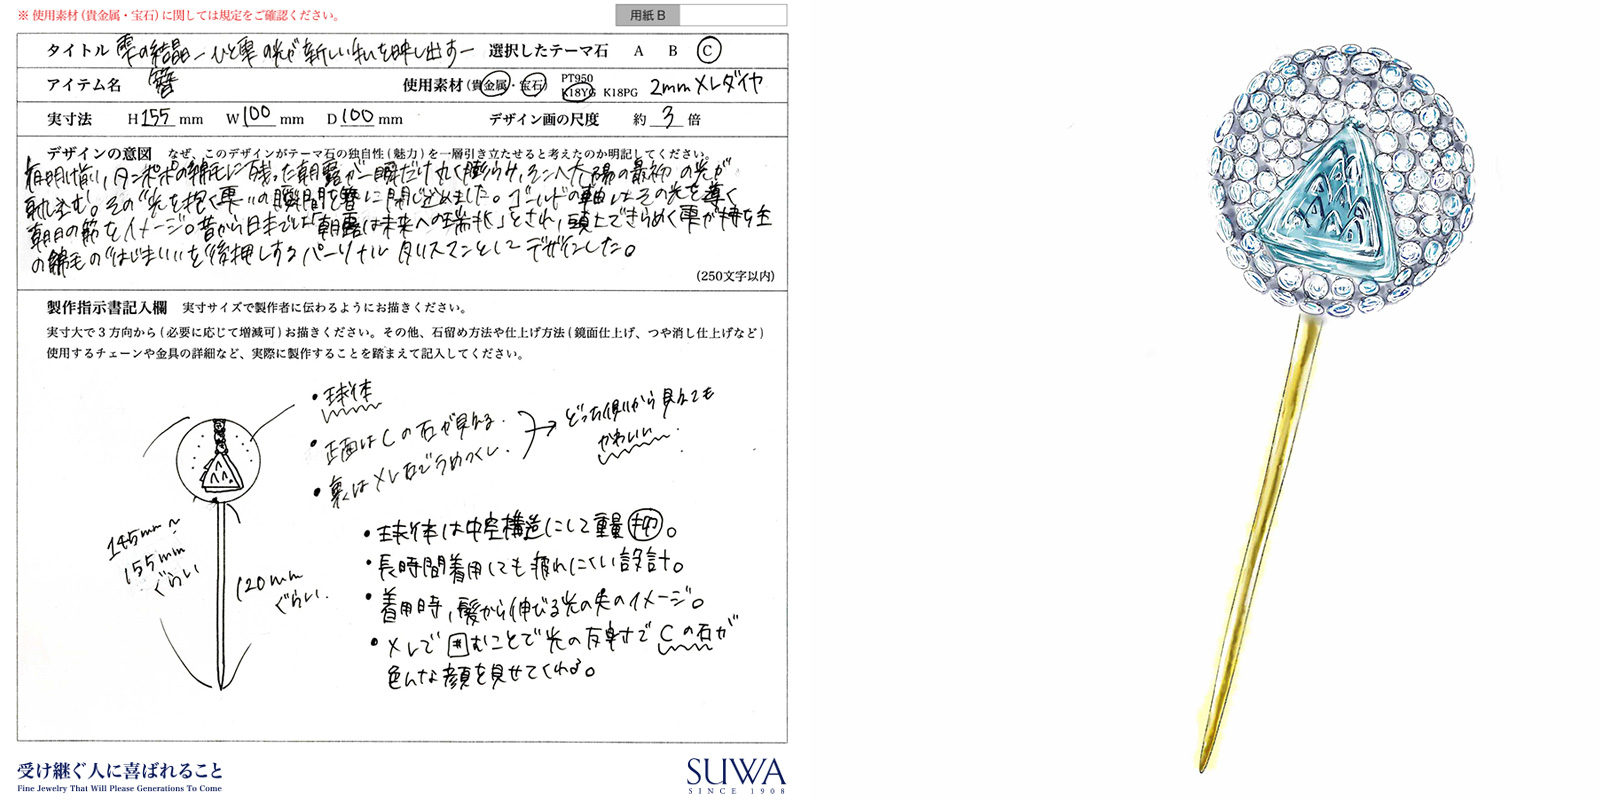 ※ 使用素材（貴金属・宝石）に関しては規定をご確認ください。
用紙 B
タイトル 雫の結晶 ー ひと雫の光が新しい私を映し出す ー 選択したテーマ石 A B C
アイテム名 簪 使用素材（貴金属・宝石） PT950 K18YG K18PG 2mmメレダイヤ
実寸法 H 155 mm W 100 mm D 100 mm デザイン画の尺度 約 3 倍
デザインの意図 なぜ、このデザインがテーマ石の独自性（魅力）を一層引き立たせると考えたのか明記してください。
夜明け前、タンポポの綿毛に残った朝露が一瞬だけ丸く膨らみ、そこへ太陽の最初の光が
射し込む。その"光を抱く雫"の瞬間を簪に閉じ込めました。ゴールドの軸はその光を導く
朝日の筋をイメージ。昔から日本では「朝露は未来への瑞兆」とされ、頭上できらめく雫が持ち主
の綿毛の"はじまり"を後押しするパーソナルタリスマンとしてデザインした。
（250文字以内）
製作指示書記入欄 実寸サイズで製作者に伝わるようにお描きください。
実寸大で3方向から（必要に応じて増減可）お描きください。その他、石留め方法や仕上げ方法（鏡面仕上げ、つや消し仕上げなど）
使用するチェーンや金具の詳細など、実際に製作することを踏まえて記入してください。
・球体
・正面はCの石が見える。
・裏はメレ石でうめつくし。
どっち側から見ても
かわいい。
145mm〜
155mm
ぐらい
120mm
ぐらい.
・球体は中空構造にして重量㊥。
・長時間着用しても疲れにくい設計。
・着用時、髪から伸びる光の矢のイメージ。
・メレで囲むことで光の反射でCの石が
色んな顔を見せてくれる。
受け継ぐ人に喜ばれること
Fine Jewelry That Will Please Generations To Come
SUWA
SINCE 1908